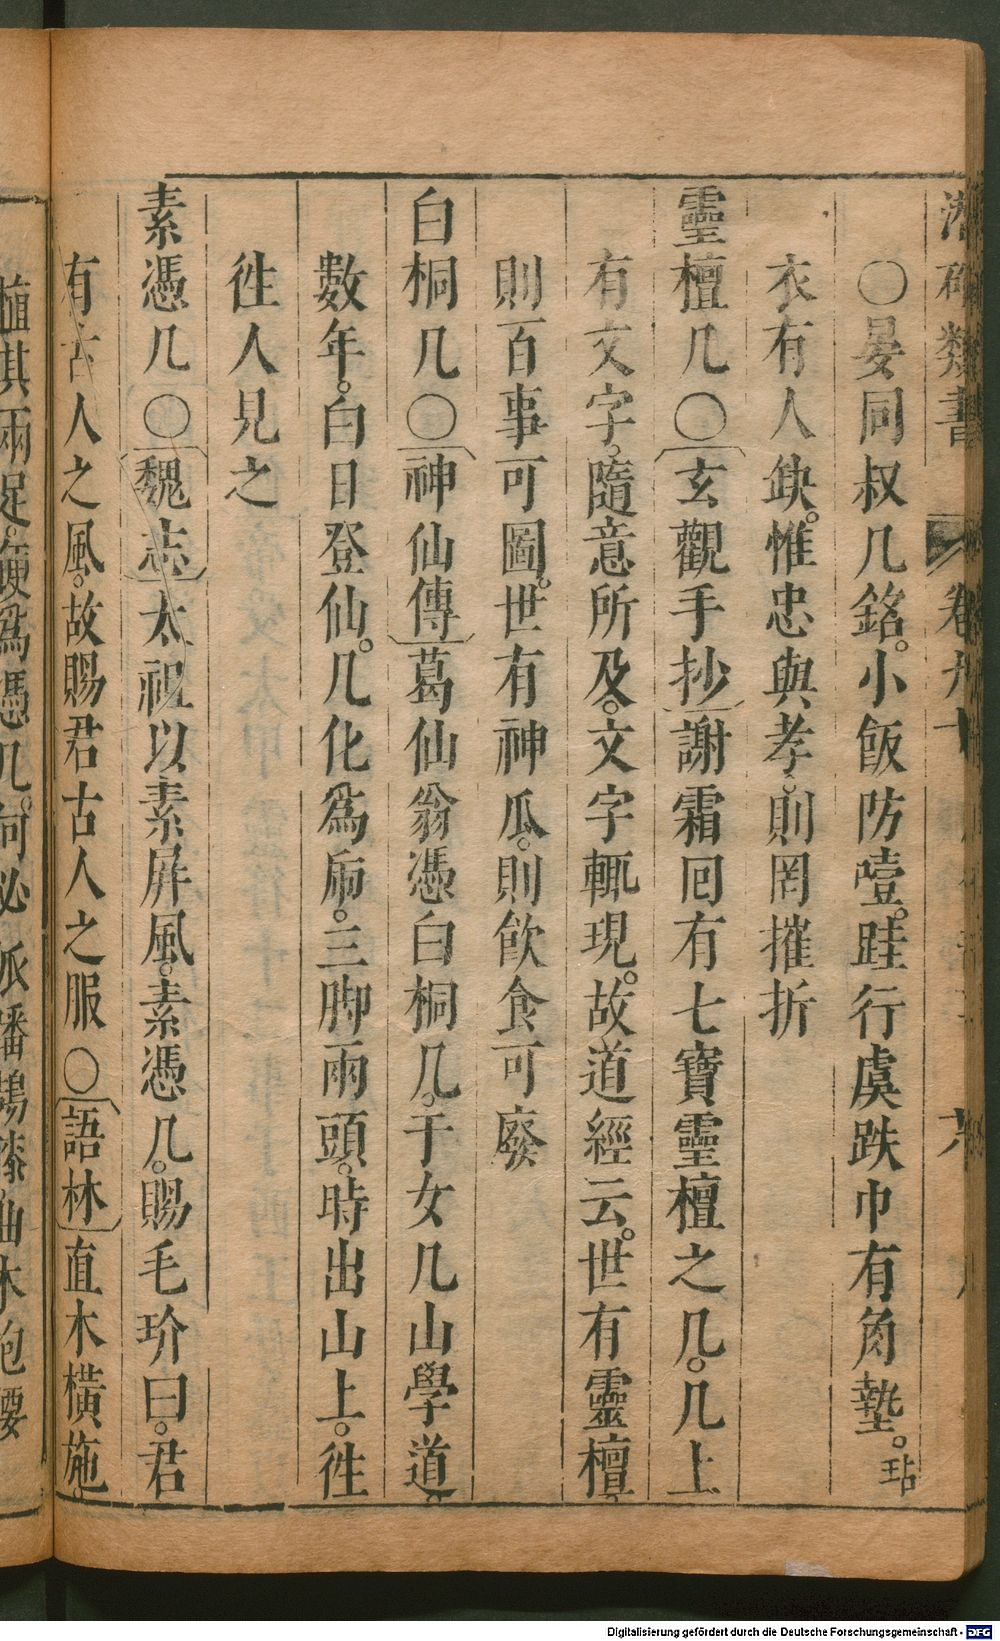 潛確類書 卷九十
〇晏同叔几銘。小飯防噎。跬行虞跌巾有角墊。玷
衣有人缺。惟忠與孝。則罔摧折
靈檀几〇玄觀手抄謝霜回有七寶靈檀之几。几上
有文字。隨意所及。文字輒現。故道經云。世有靈檀。
則百事可圖。世有神瓜。則飲食可廢
白桐几〇神仙傳葛仙翁憑白桐几。于女几山學道。
數年。白日登仙。几化爲廊。三脚兩頭。時出山上。徃
徃人見之
素憑几〇魏志太祖以素屛風。素憑几。賜毛玠曰。君
有古人之風。故賜君古人之服〇語林直木橫施。
植其兩足。便爲憑几。何必
Digitalisierung gefördert durch die Deutsche Forschungsgemeinschaft - DFG